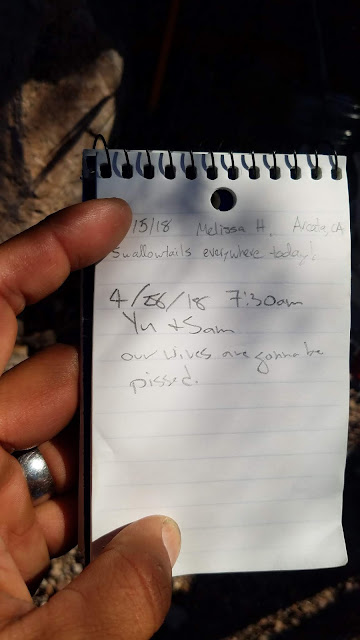 15/18 Melissa H. Arcata, CA
Swallowtails everywhere today!
4/28/18 7:30am
Yu + Sam
our wives are gonna be
pissed.